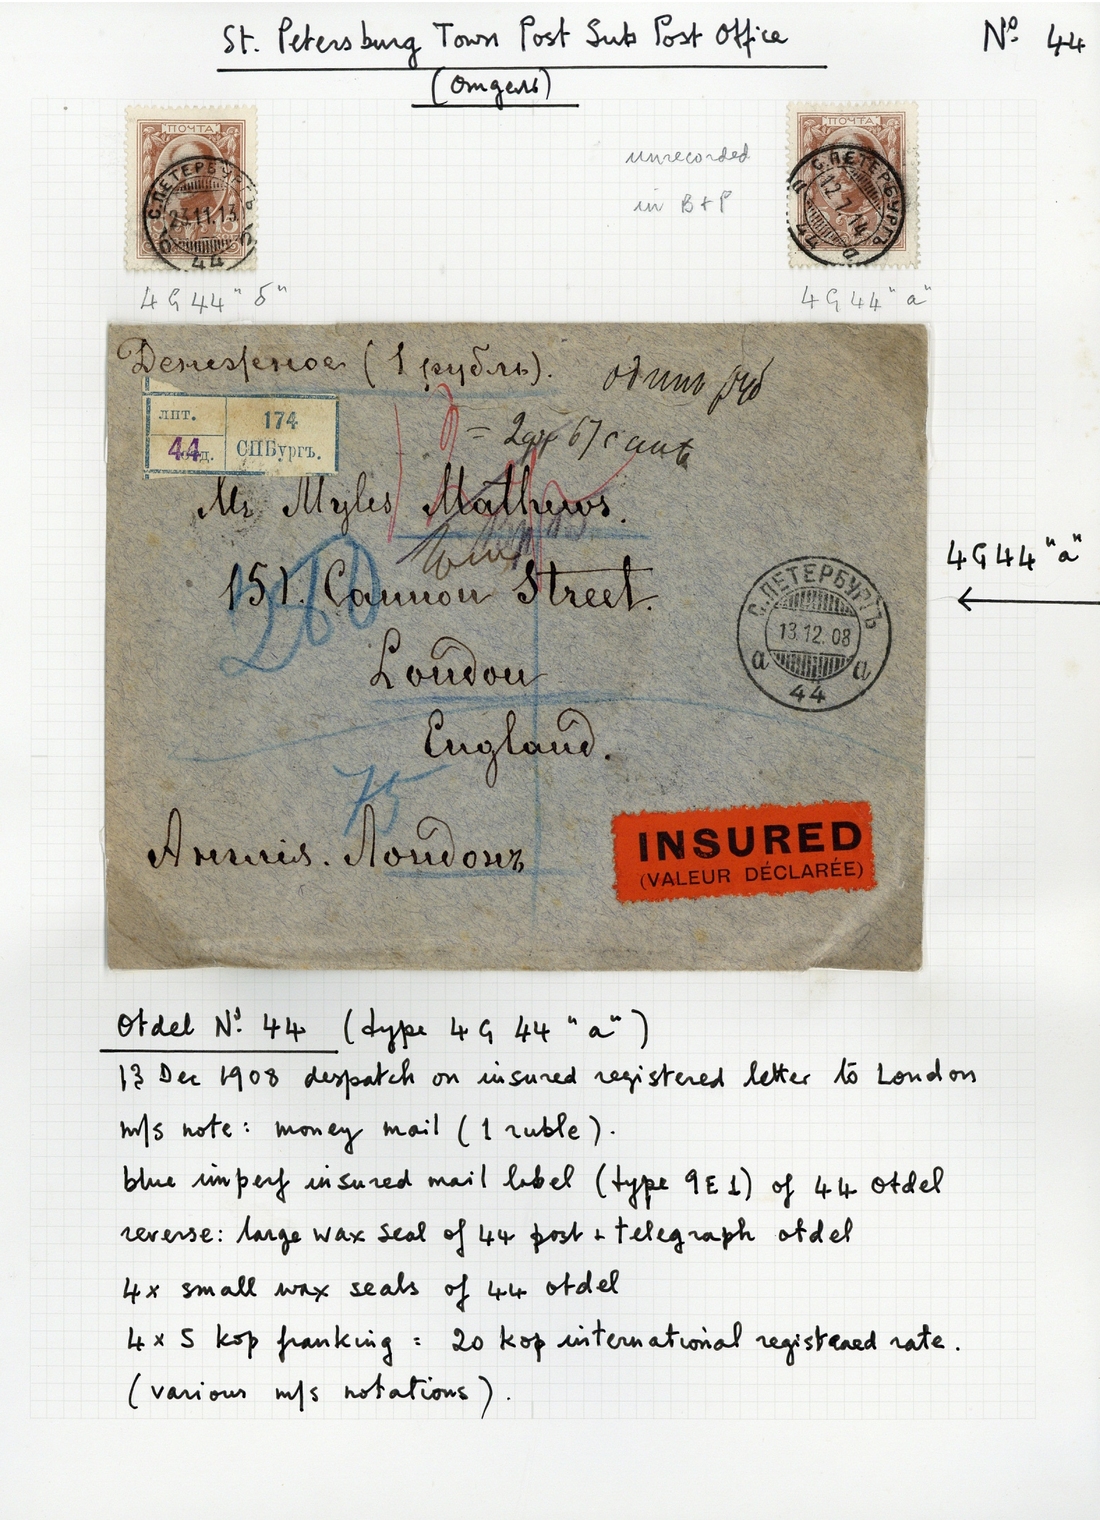 St. Petersburg Town Post Sub Post Office
Nº 44
(отделъ)
ПОЧТА
С.ПЕТЕРБУРГ
23.11.13
44
4G44 "б"
unrecorded
in B+P
ПОЧТА
С.ПЕТЕРБУРГЪ
12.7.14
а а
44
4G44 "a"
Денежное (1 рубль).
одинъ руб
= 2 67 cent
лпт. 174
44 отд. СПБургъ.
Mr Myles Mathews.
151. Cannon Street.
260
London
England.
75
Англiя. Лондонъ
С.ПЕТЕРБУРГЪ
13.12.08
а а
44
4G44 "a"
INSURED
(VALEUR DÉCLARÉE)
Otdel Nº 44 (type 4G 44 "a")
13 Dec 1908 despatch on insured registered letter to London
m/s note: money mail (1 ruble).
blue imperf insured mail label (type 9E1) of 44 otdel
reverse: large wax seal of 44 post + telegraph otdel
4x small wax seals of 44 otdel
4 x 5 kop franking = 20 kop international registered rate.
(various m/s notations).